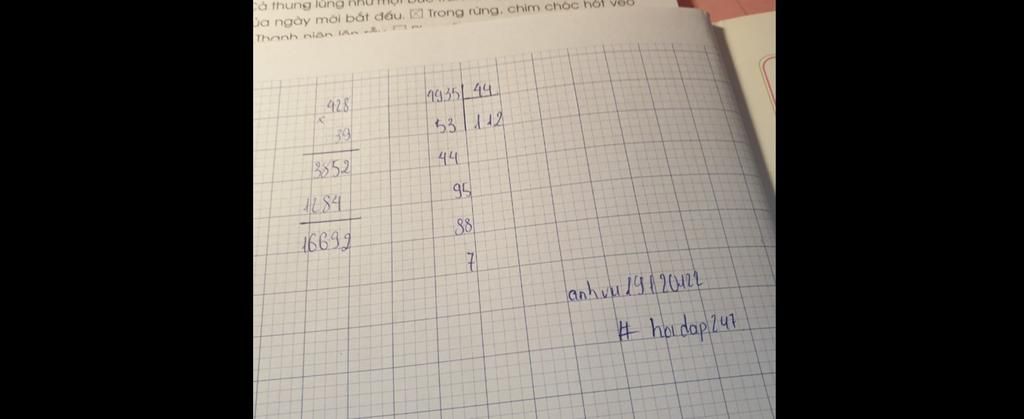 cả thung lũng như một bức
ủa ngày mới bắt đầu. ☒ Trong rừng, chim chóc hót véo
Thanh niên lên
428
×
39
3852
1284
16692
4935 44
53 112
44
95
88
7
anhvu19112042
# hoidap247